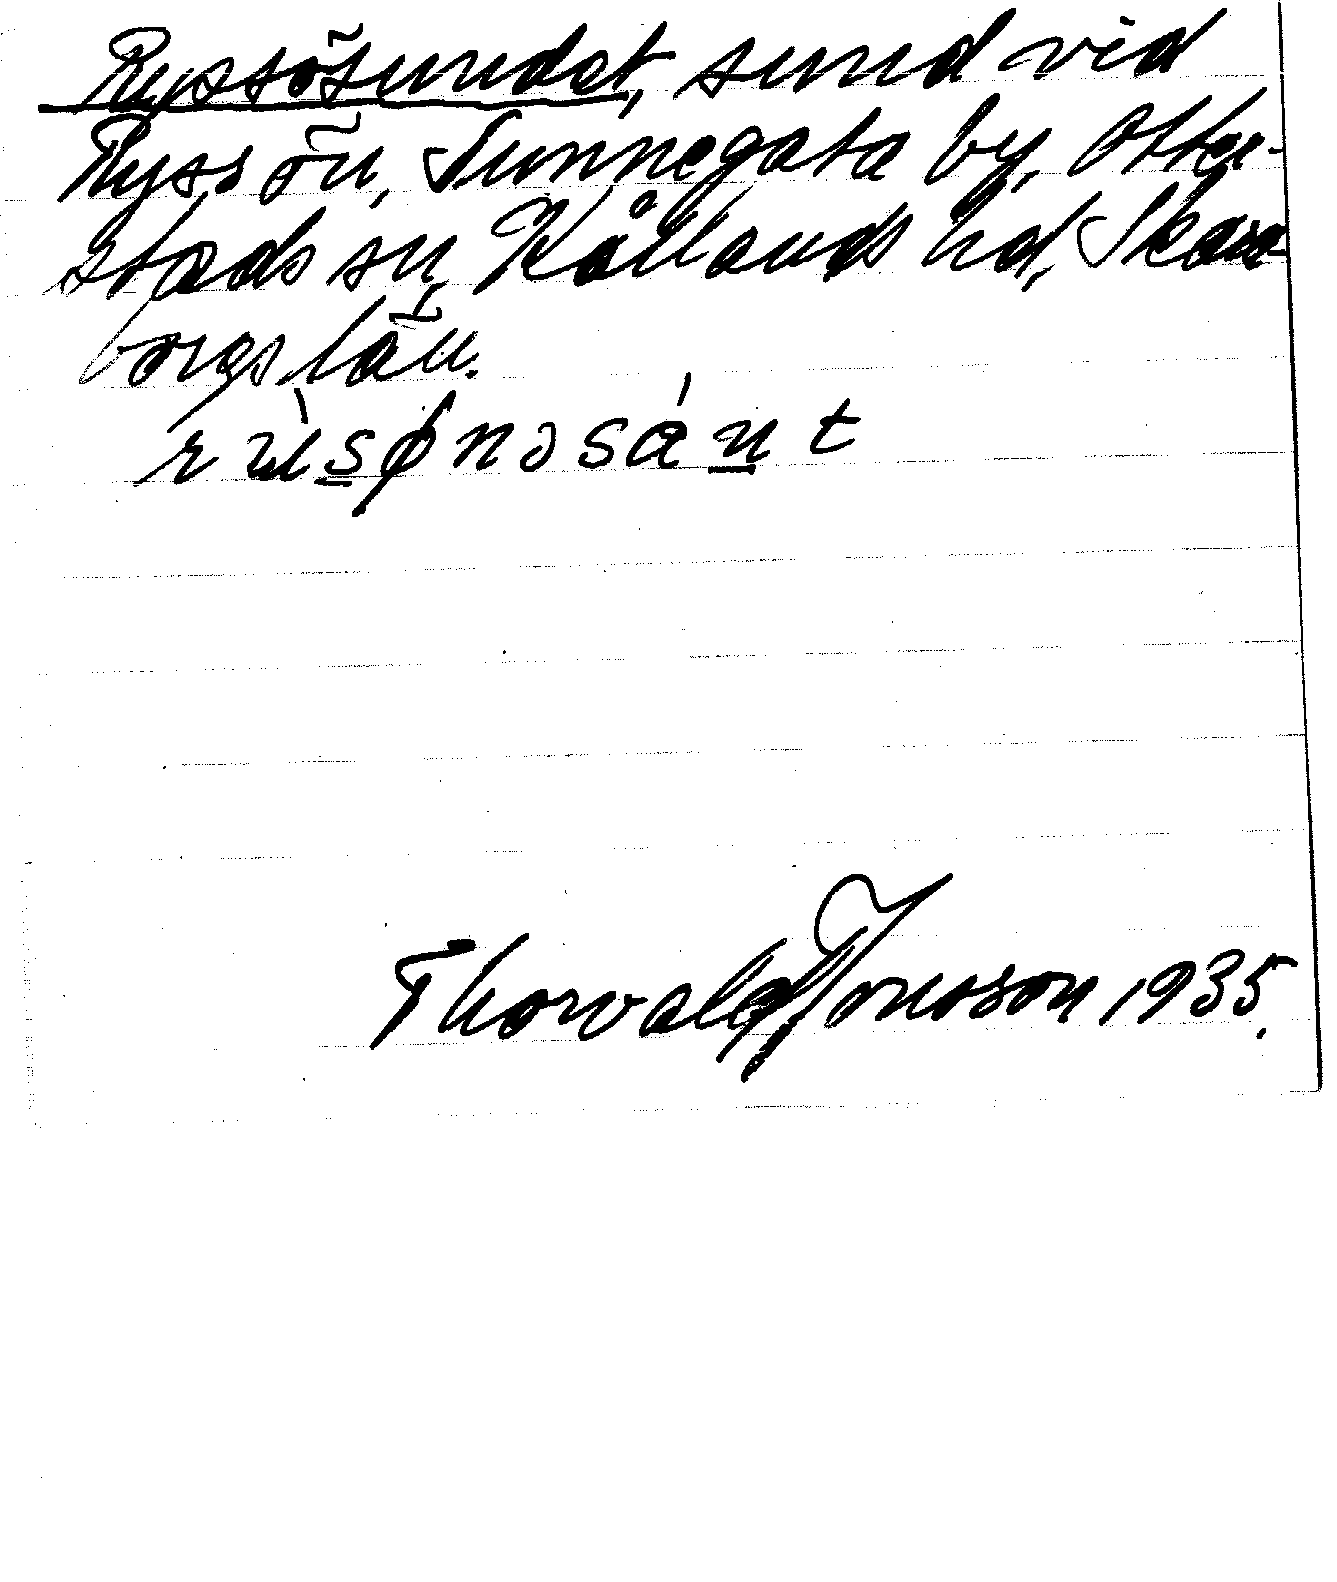 Ryssösundet, sund vid
Ryssön, Sunnegata by, Otter-
stads sn, Kållands hd, Skara-
borgs län.
Thorvald Jonsson 1935.